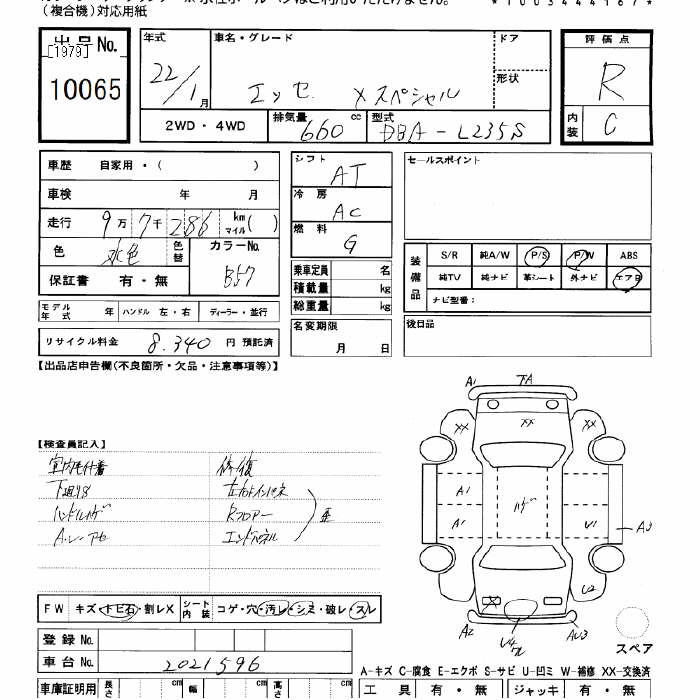 (複合機)対応用紙
*1003444167*
出品No.
[1979]
10065
年式 22/1 月
車名・グレード エッセ Xスペシャル
ドア
形状
2WD・4WD
排気量 660 cc
型式 DBA-L235S
評価点 R
内装 C
車歴 自家用・( )
車検 年 月
走行 9万7千286 km マイル( )
色 水色 色替
カラーNo. B57
保証書 有・無
モデル年式 年 ハンドル 左・右 ディーラー・並行
リサイクル料金 8,340 円 預託済
シフト AT
冷房 AC
燃料 G
乗車定員 名
積載量 kg
総重量 kg
名変期限 月 日
セールスポイント
装備品
S/R 純A/W P/S P/W ABS
純TV 純ナビ 革シート 外ナビ エアB
ナビ型番:
後日品
【出品店申告欄(不良箇所・欠品・注意事項等)】
【検査員記入】
室内毛付着
下廻サビ
ハンドルハゲ
修復
Rフロアー
エンドパネル
歪
A1 TA
XX XX XX
A1 A1 ハゲ U1 AU
X U2
A2 U4 AU3
スペア
FW キズ・トビ石・割レX
シート内装 コゲ・穴・汚レ・シミ・破レ・スレ
登録No.
車台No. 2021596
A-キズ C-腐食 E-エクボ S-サビ U-凹ミ W-補修 XX-交換済
車庫証明用 長さ cm 幅 cm 高さ cm
工具 有・無 ジャッキ 有・無